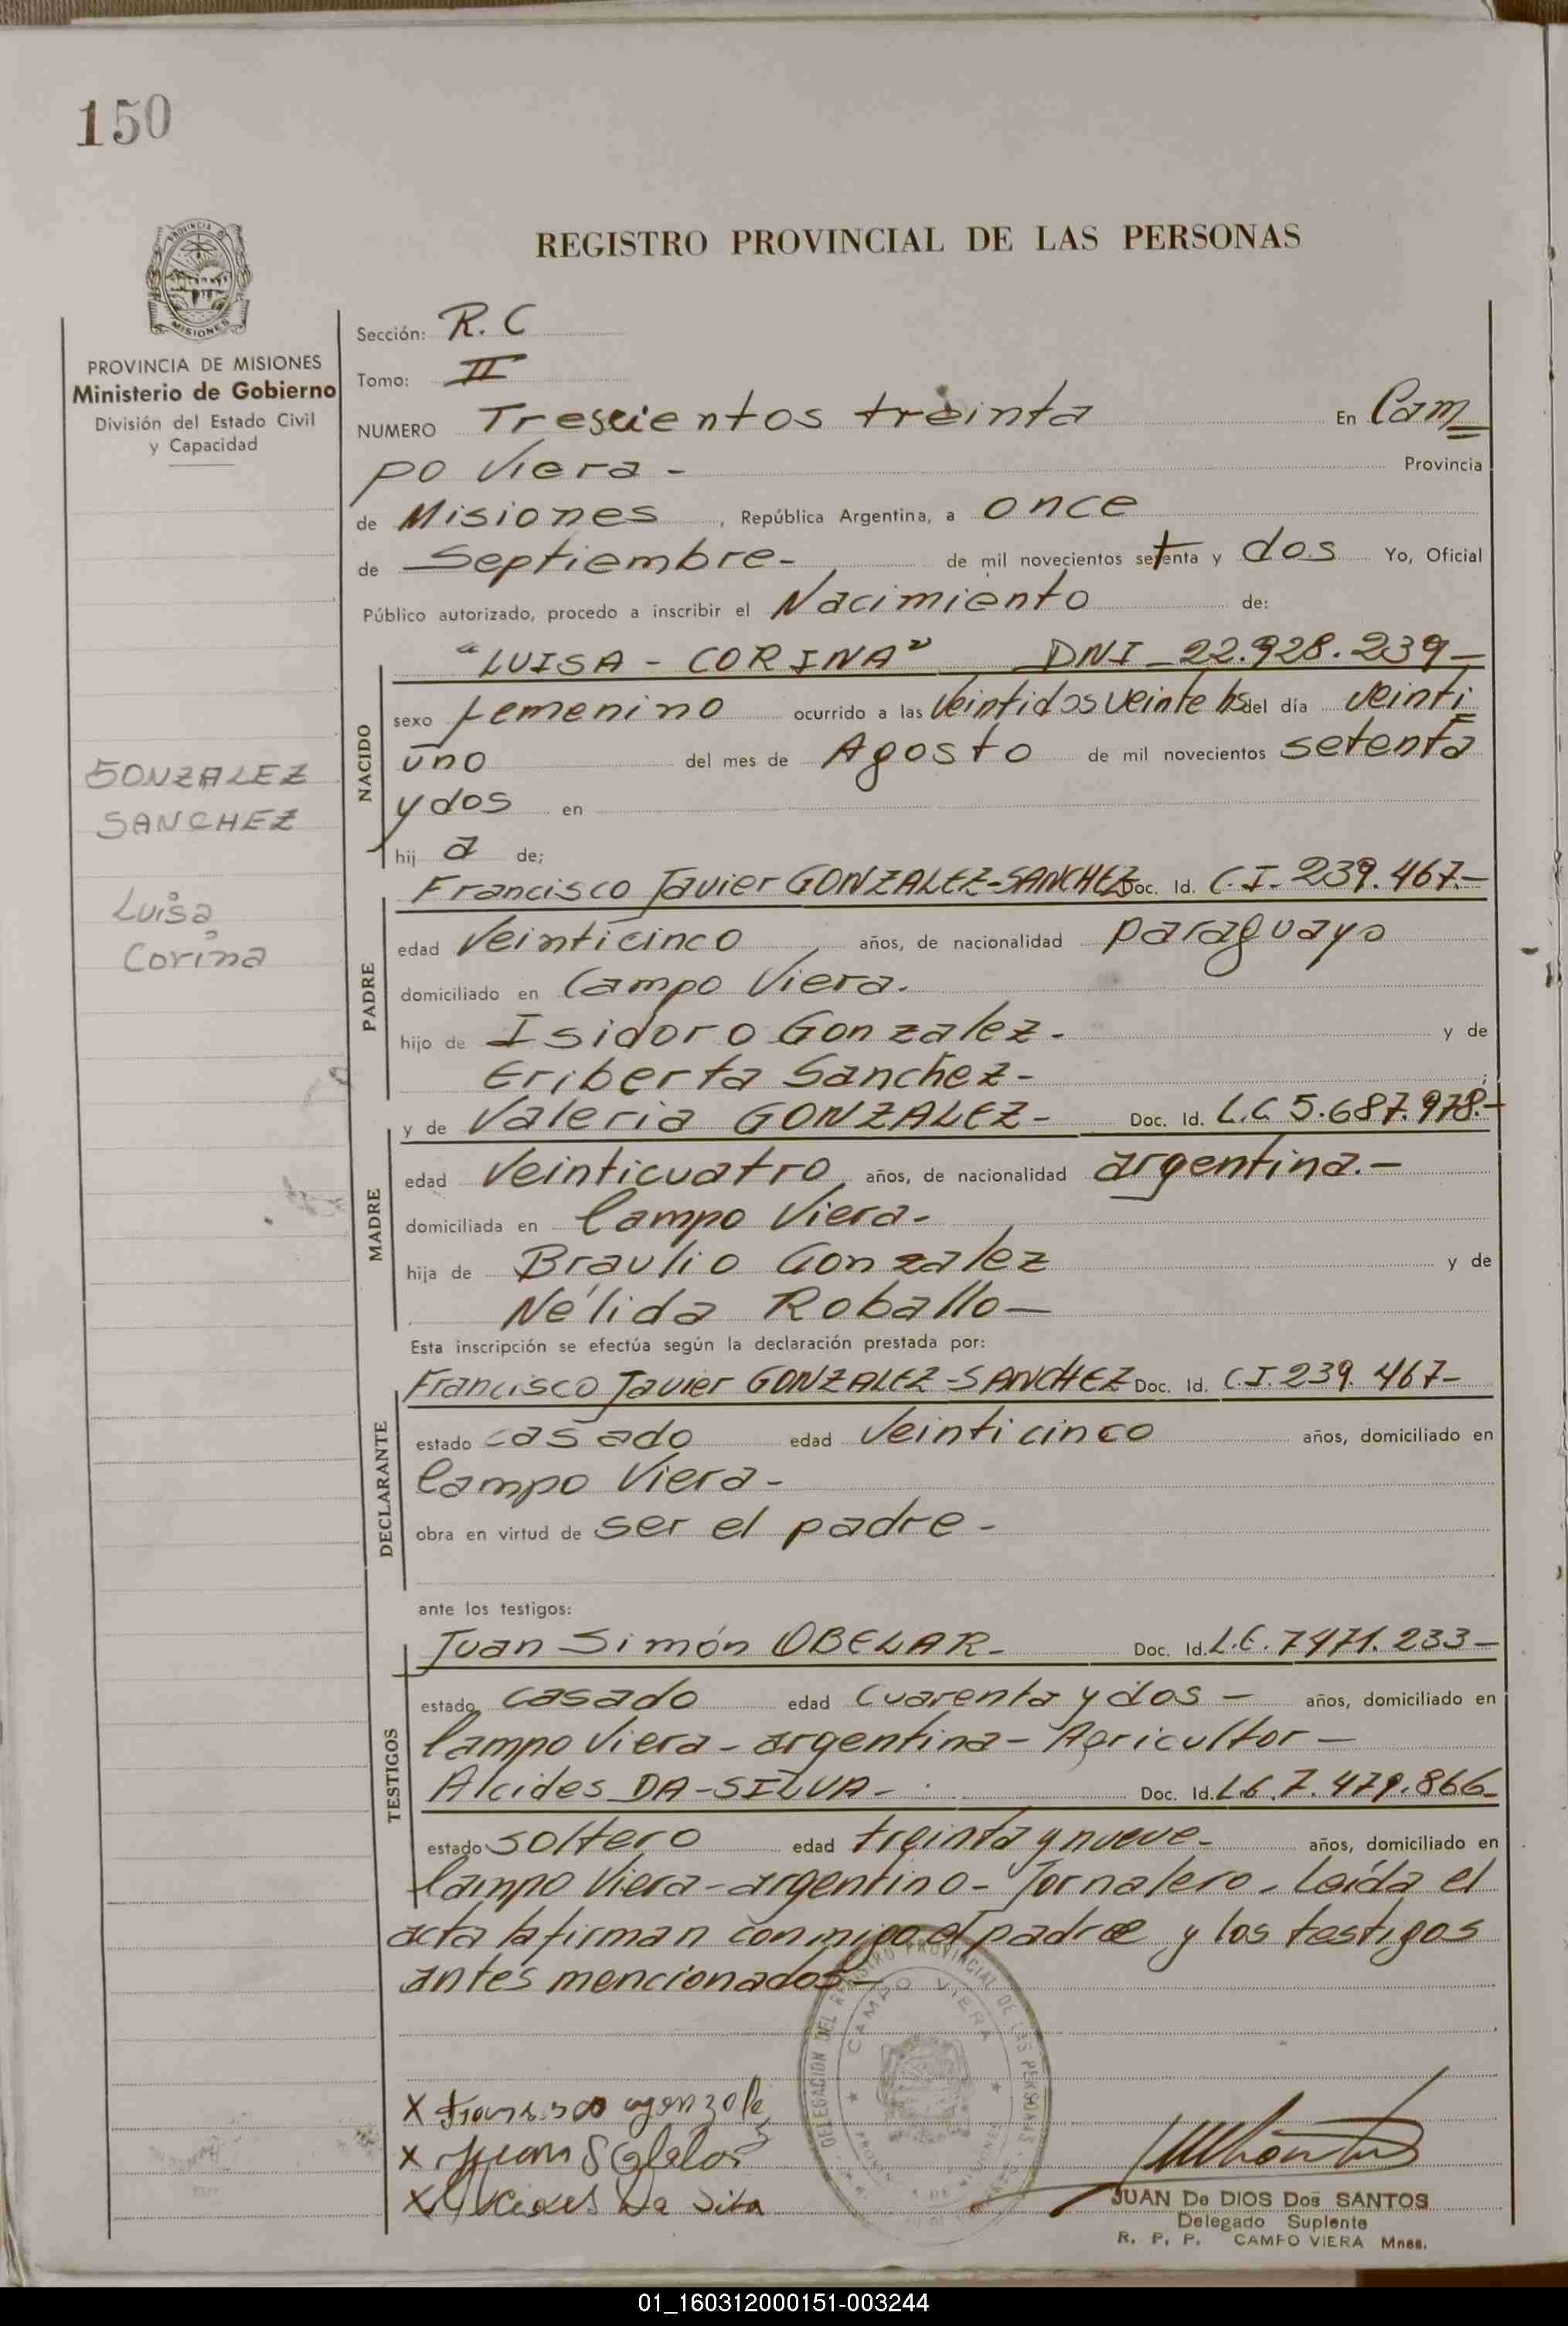 150
REGISTRO PROVINCIAL DE LAS PERSONAS
PROVINCIA DE MISIONES
Ministerio de Gobierno
División del Estado Civil
y Capacidad
GONZALEZ
SANCHEZ
Luisa
Corina
Sección: R. C
Tomo: II
NUMERO Trescientos treinta En Cam
po Viera - Provincia
de Misiones, República Argentina, a once
de Septiembre- de mil novecientos setenta y dos Yo, Oficial
Público autorizado, procedo a inscribir el Nacimiento de:
"LUISA - CORINA" DNI - 22.928.239-
NACIDO
sexo femenino ocurrido a las veintidos veinte hs del día veinti
uno del mes de Agosto de mil novecientos setenta
y dos en
hij a de;
Francisco Javier GONZALEZ-SANCHEZ Doc. Id. C.I. 239.467.-
PADRE
edad Veinticinco años, de nacionalidad paraguayo
domiciliado en Campo Viera.
hijo de Isidoro Gonzalez- y de
Eriberta Sanchez- ;
y de Valeria GONZALEZ- Doc. Id. L.C 5.687.978.-
MADRE
edad Veinticuatro años, de nacionalidad argentina.-
domiciliada en Campo Viera-
hija de Braulio Gonzalez y de
Nélida Roballo-
Esta inscripción se efectúa según la declaración prestada por:
Francisco Javier GONZALEZ-SANCHEZ Doc. Id. C.I. 239.467-
DECLARANTE
estado casado edad Veinticinco años, domiciliado en
Campo Viera-
obra en virtud de ser el padre-
ante los testigos:
Juan Simón OBELAR- Doc. Id. L.E. 7471.233-
TESTIGOS
estado casado edad cuarenta y dos - años, domiciliado en
Campo Viera - argentina - Agricultor -
Alcides DA-SILVA- Doc. Id. L.E. 7.479.866-
estado soltero edad treinta y nueve- años, domiciliado en
Campo Viera-argentino- Jornalero. Leída el
acta la firman conmigo el padre y los testigos
antes mencionados-
DELEGACION DEL REGISTRO PROVINCIAL DE LAS PERSONAS
CAMPO VIERA
X Francisco gonzalez
X Juan S
X Alcides Da Silva
JUAN De DIOS Dos SANTOS
Delegado Suplente
R. P. P. CAMPO VIERA Mnes.
01_160312000151-003244